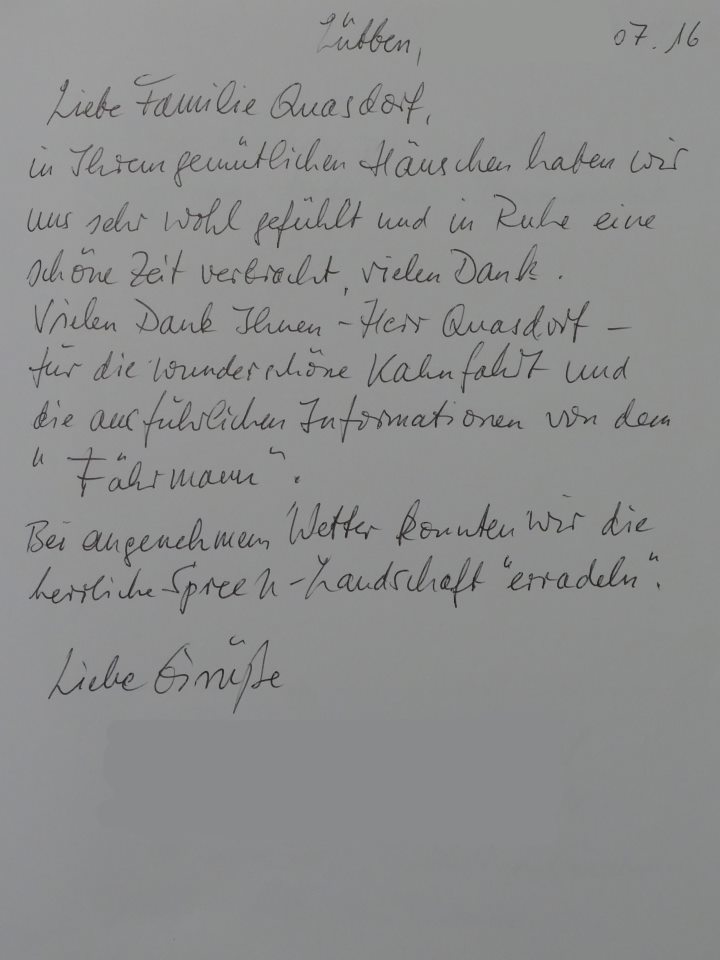 Lübben, 07.16
Liebe Familie Quasdorf,
in Ihrem gemütlichen Häuschen haben wir
uns sehr wohl gefühlt und in Ruhe eine
schöne Zeit verbracht, vielen Dank.
Vielen Dank Ihnen - Herr Quasdorf -
für die wunderschöne Kahnfahrt und
die ausführlichen Informationen von dem
"Fährmann".
Bei angenehmem Wetter konnten wir die
herrliche Spree-Landschaft "erradeln".
Liebe Grüße